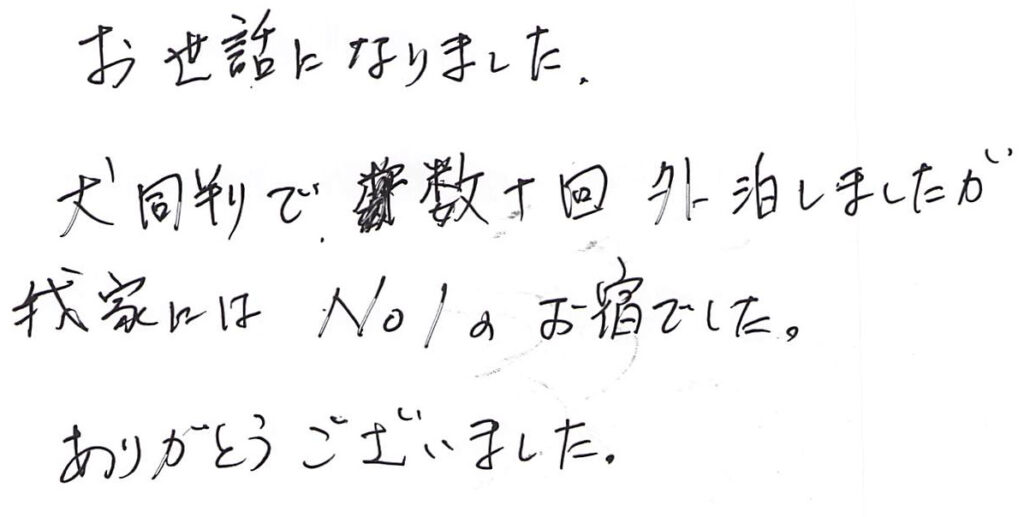 お世話になりました.
犬同判で.数十回外泊しましたが
我家にはNo1のお宿でした。
ありがとうございました.